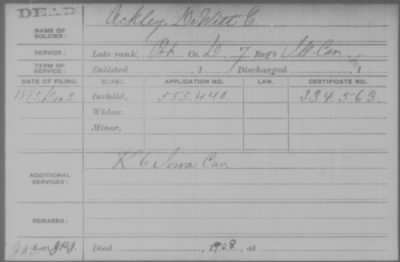 DEAD
NAME OF SOLDIER: Ackley, DeWitt C.
SERVICE: Late rank, Pvt Co. D, 7 Reg't Ill. Cav
TERM OF SERVICE: Enlisted , 1 Discharged , 1
DATE OF FILING. CLASS. APPLICATION NO. LAW. CERTIFICATE NO.
1885 Invalid, 555.440 334.563
Widow,
Minor,
ADDITIONAL SERVICES: K 6 Iowa Cav
REMARKS:
Died , 1928, at